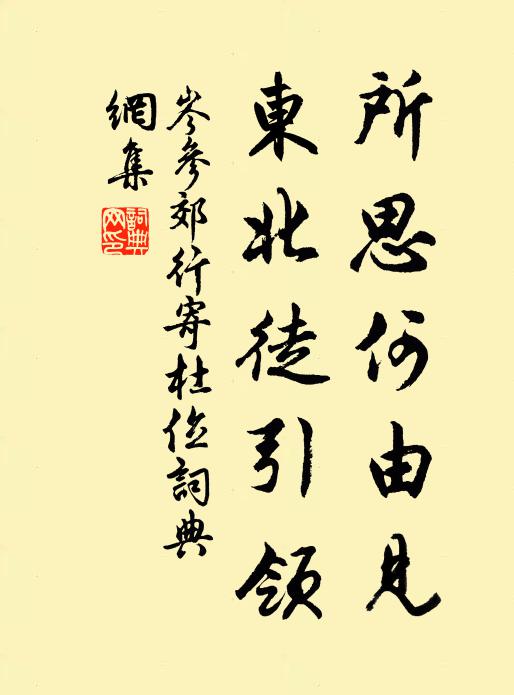 所思何由見
東北徒引領
岑參郊行寄杜位詞典
網集
詞典網印